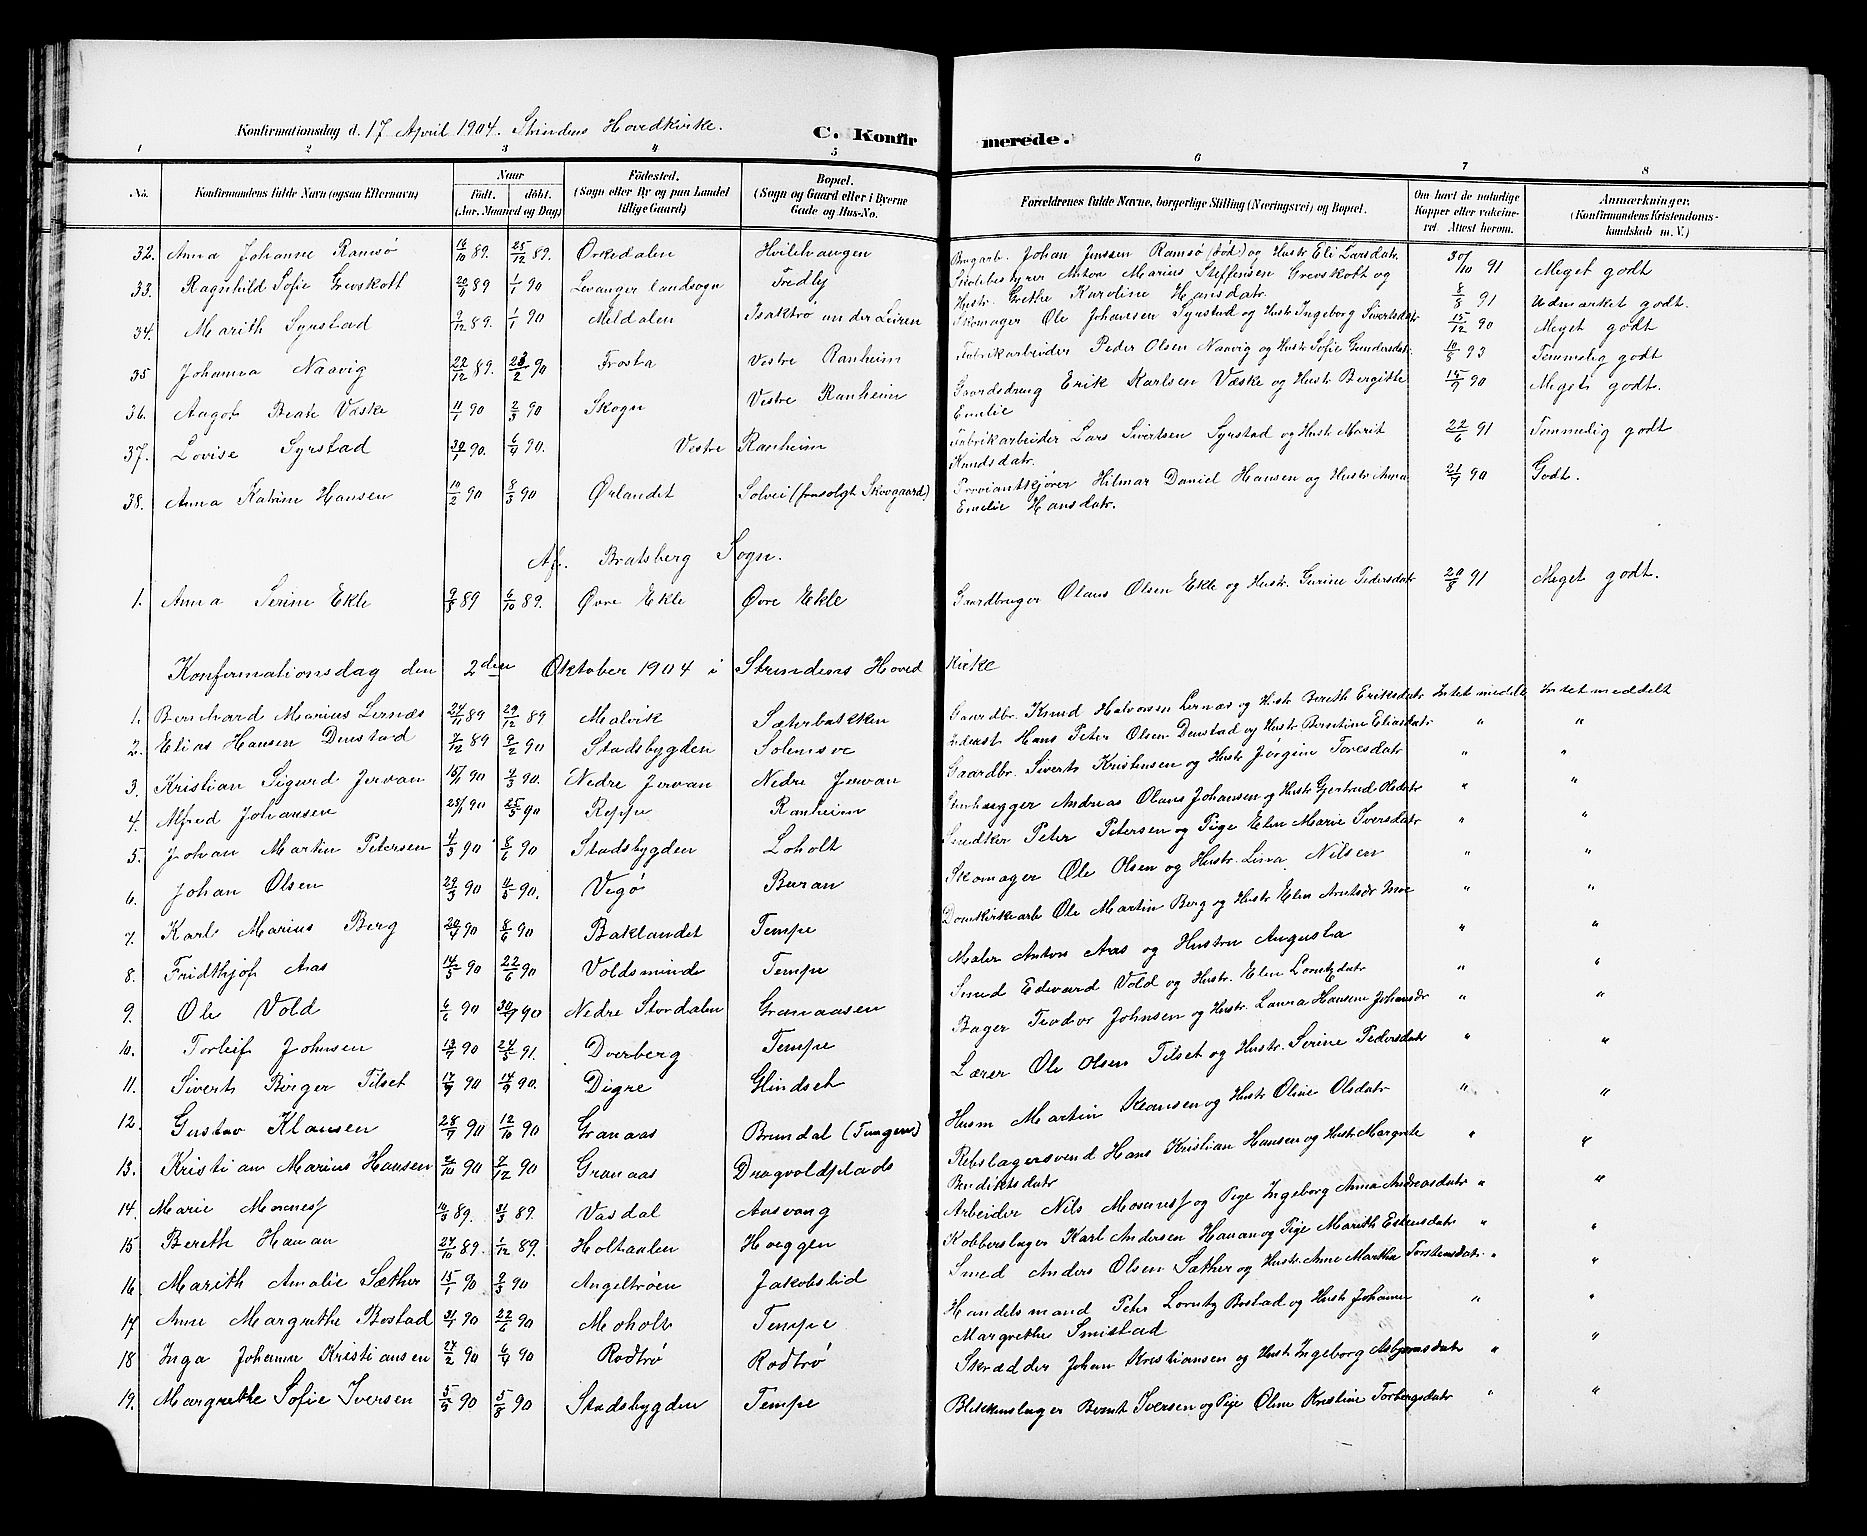 Konfirmationsdag d. 17 April 1904. Strindens Hovedkirke. C. Konfirmerede.
1 2 3 4 5 6 7 8
No. Konfirmandens fulde Navn (ogsaa Efternavn) Naar født. døbt. (Aar, Maaned og Dag) Fødested. (Sogn eller By og paa Landet tillige Gaard) Bopæl. (Sogn og Gaard eller i Byerne Gade og Hus-No. Forældrenes fulde Navne, borgerlige Stilling (Næringsvei) og Bopæl. Om havt de naturlige Kopper eller vakcineret. Attest herom. Anmærkninger. (Konfirmandens Kristendomskundskab m.V.)
32. Anna Johanne Ramsø 16/10 89. 25/12 89. Orkedalen Hvilehaugen Johan Jenssen Ramsø (død) og Hustr Eli Larsdatr. 30/10 91 Meget godt
33. Ragnhild Sofie Grevskott 20/9 89 1/1 90 Levanger landsogn Fredly Skolebestyrer Anton Marius Steffensen Grevskott og Hustr. Grethe Karoline Hansdatr. 8/8 91 Udmærket godt.
34. Marith Syrstad 9/12 89. 1/1 90 Meldalen Isaktrø under Leiren Skomager Ole Johansen Syrstad og Hustr Ingeborg Sivertsdatr 15/12 90 Meget godt
35 Johanna Naavig 22/12 89. 23/2 90 Frosta Vestre Ranheim Fabrikarbeider Peder Olsen Naavig og Hustr Sofie Gundersdatr. 10/5 93 Temmelig godt
36. Aagot Beate Væske 11/1 90 2/3 90 Skogn Vestre Ranheim Gaardsdreng Erik Karlsen Væske og Hustr Bergitte Emelie 15/9 90 Meget godt.
37. Lovise Syrstad 30/1 90. 6/4 90. Vestre Ranheim Fabrikarbeider Lars Sivertsen Syrstad og Hustr Marit Knudsdatr. 22/6 91 Temmelig godt
38. Anna Katrine Hansen 10/2 90 8/3 90 Ørlandet Solvei (frasolgt Skovgaard) Proviantkjører Hilmar Daniel Hansen og Hustr Anna Emelie Hansdatr. 21/7 90 Godt.
Af. Bratsberg Sogn.
1. Anna Serine Ekle 9/8 89 6/10 89. Øvre Ekle Øvre Ekle Gaardbruger Olaus Olsen Ekle og Hustr. Gurine Pedersdatr 20/8 91 Meget godt.
Konfirmationsdag den 2den Oktober 1904 i Strindens Hoved kirke
1. Bernhard Marius Lernæs 24/11 89 29/12 89 Malvik Sæterbakken Gaardbr. Knud Halvorsen Lernæs og Hustr Bereth Eriksdatr Intet meddelt Intet meddelt
2. Elias Hansen Denstad 7/12 89 9/2 90 Stadsbygden Solemsve Inderst Hans Peter Olsen Denstad og Hustr Berntine Eliasdatr " "
3. Kristian Sigurd Jervan 15/1 90 2/3 90. Nedre Jervan Nedre Jervan Gaardbr. Sivert Kristensen og Hustr Jørgine Toresdatr " "
4. Alfred Johansen 25/1 90 25/5 90 Reppe Ranheim Andreas Olaus Johansen og Hustr Gjertrud Olsdatr " "
5. Johan Martin Petersen 4/3 90 8/6 90 Stadsbygden Loholt Snedker Peter Petersen og Pige Elen Marie Iversdatr " "
6. Johan Olsen 29/3 90 11/5 90. Vegø Buran Skomager Ole Olsen og Hustr. Lina Nilsen " "
7. Karl Marius Berg 20/4 90 8/6 90 Baklandet Tempe Domkirkearb Ole Martin Berg og Hustr Elen Arntsdr Moe " "
8. Fridthjof Aas 14/5 90 22/6 90 Voldsminde Tempe Maler Anton Aas og Hustru Augusta " "
9. Ole Vold 6/6 90 30/7 90 Nedre Stordalen Granaasen Smed Edevard Vold og Hustr. Elen Lorntzdatr " "
10. Torleif Johnsen 13/7 90 24/5 91. Dverberg Tempe Bager Teodor Johnsen og Hustr. Laura Hansine Johansdr " "
11. Sivert Birger Tilset 17/7 90 14/9 90. Digre Glindset Lærer Ole Olsen Tilset og Hustr. Serine Pedersdatr " "
12. Gustav Klausen 28/7 90 12/10 90 Granaas Brundal (Tungen) Husm Martin Klausen og Hustr Oline Olsdatr " "
13. Kristian Marius Hansen 2/10 90 7/12 90 Granaas Dragvoldplads Rebslagersvend Hans Kristian Hansen og Hustr Margrete Bendiktsdatr " "
14. Marie 10/3 89. 31/3 89. Vasdal Aasvang Arbeider Nils og Pige Ingeborg Anna Andreasdatr " "
15 Bereth Hanan 27/10 89. 1/12 89. Holtaalen Hoeggen Kobberslager Karl Andersen Hanan og Pige Marith Estensdatr " "
16 Marith Amalie Sæther 15/1 90 2/3 90 Angeltrøen Jakobslid Smed Anders Olsen Sæther og Hustr Anne Martha Torstensdatr " "
17 Anne Margrethe Bostad 21/4 90 22/6 90 Moholt Tempe Handelsmand Peter Lorntz Bostad og Hustr Johanne Margrethe Smistad " "
18 Inga Johanne Kristiansen 27/2 90 6/4 90 Rodtrø Rodtrø Skrædder Johan Kristiansen og Hustr Ingeborg Asbjørnsdatr " "
19. Margrethe Sofie Iversen 5/5 90 5/8 90 Stadsbygden Tempe Blikkenslager Bernt Iversen og Pige Oline Kristine Torbergsdatr " "